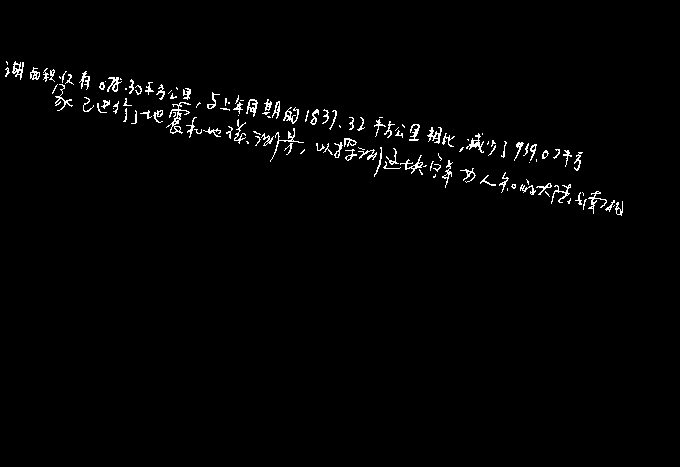 湖面积仅有878.30平方公里，与上年同期的1837.32平方公里相比，减少了959.02平方
家已进行了地震和地磁测量，以探测这块鲜为人知的大陆与南极